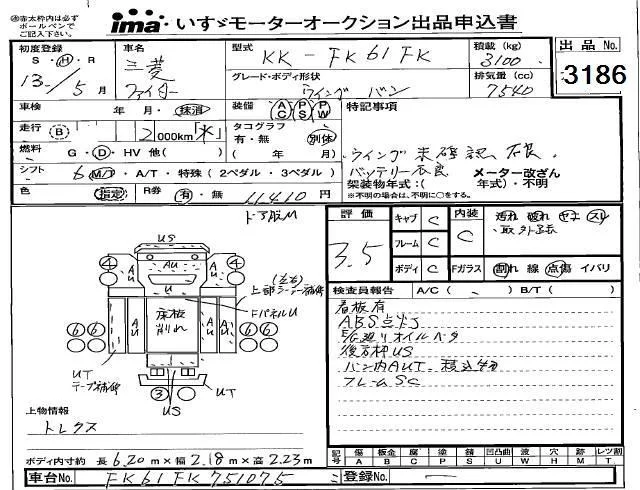 ※赤太枠内は必ず ボールペンで ご記入下さい。
ima いすゞモーターオークション出品申込書
初度登録 S・H・R 13年 5月
車名 三菱 ファイター
型式 KK-FK61FK
積載(kg) 3100
出品No. 3186
グレード・ボディ形状 ウイング バン
排気量(cc) 7540
車検 年・月・抹消
装備 AC PS PW
特記事項
走行 B 2 000km「水」
タコグラフ 有・無 別体 ( 年 月)
燃料 G・D・HV 他( )
ウイング未確認、不良
シフト 6 M/T・A/T・特殊(2ペダル・3ペダル)
バッテリー不良 メーター改ざん
架装物年式:( 年式)・不明
※有償の場合は、不明に○をする。
色 指定
R券 有・無 11410円
ドア凹M
評価 3.5
キャブ C
フレーム C
ボディ C
内装 C
汚れ 破れ ヤニ スレ
・取外し
Fガラス 割れ 線 点傷 イバリ
US
4 AU AU AU 4
U
上部コーナー補修 (左右)
FパネルU
6 6 AU U 床板割れ AU AU 6 6
UT テープ補修
3
UT
US
検査員報告 A/C( ) B/T( )
看板有
ABS点灯
E/G廻りオイルベタ
後方枠US
バン内AUT
フレームSC
上物情報
トレクス
ボディ内寸約 長 6.20m × 幅 2.18m × 高 2.23m
記号 傷 A 板金 B 腐 C 塗 P 錆 S 凹凸曲 U 波 W 穴 H 跡 M レツ割 T
車台No. FK61FK751075
登録No. ―